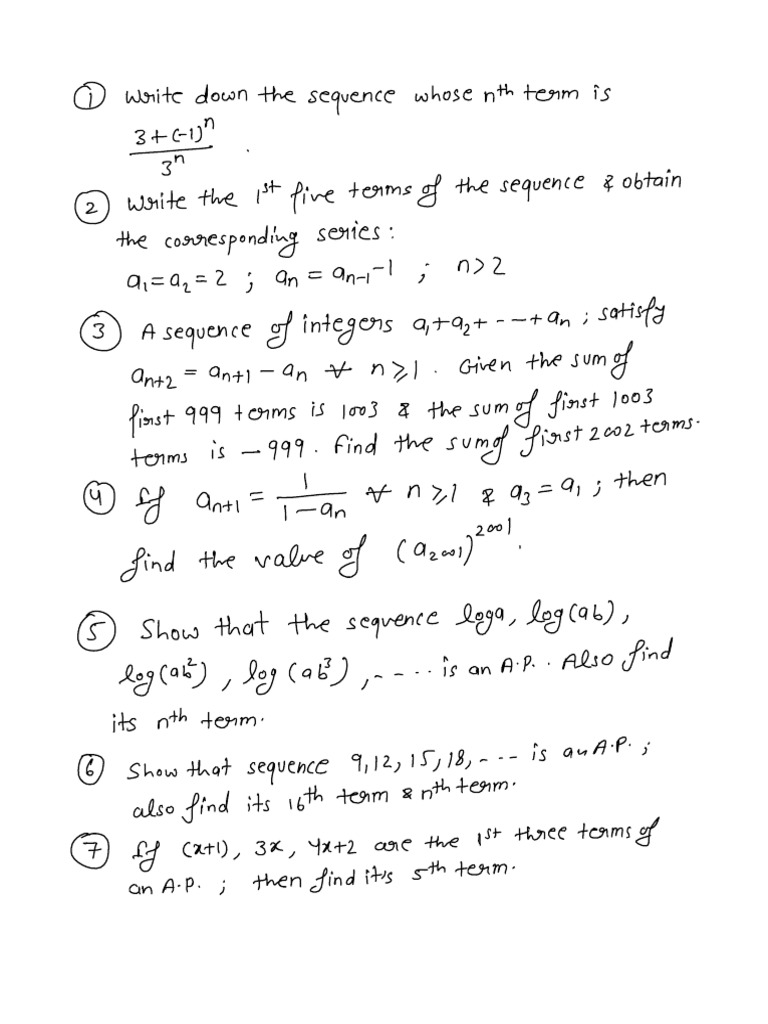 ① Write down the sequence whose nth term is
3+(-1)^n / 3^n .
② Write the 1st five terms of the sequence & obtain
the corresponding series:
a₁=a₂=2 ; aₙ = aₙ₋₁-1 ; n>2
③ A sequence of integers a₁+a₂+---+aₙ ; satisfy
aₙ₊₂ = aₙ₊₁ - aₙ ∀ n≥1. Given the sum of
first 999 terms is 1003 & the sum of first 1003
terms is -999. Find the sum of first 2002 terms.
④ If aₙ₊₁ = 1/(1-aₙ) ∀ n≥1 & a₃=a₁ ; then
find the value of (a₂₀₀₁)^2001.
⑤ Show that the sequence loga, log(ab),
log(ab²), log(ab³), ---.. is an A.P.. Also find
its nth term.
⑥ Show that sequence 9,12,15,18,--.. is an A.P. ;
also find its 16th term & nth term.
⑦ If (x+1), 3x, 4x+2 are the 1st three terms of
an A.P. ; then find it's 5th term.